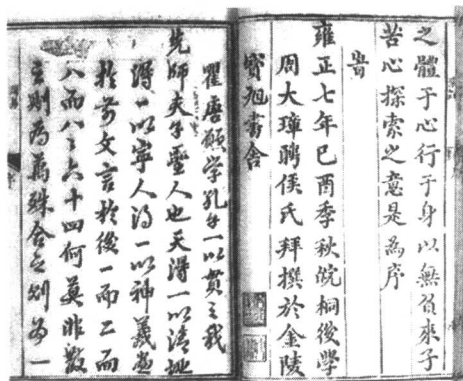 之體于心行于身以無負來子
苦心探索之意是為序
旹
雍正七年己酉季秋皖桐後學
周大璋聘侯氏拜撰於金陵
寶旭書舍
瞿唐願學孔子一以貫之我
先師夫子聖人也天得一以清地
得一以寧人得一以神羲畫
於前文言於後一而二而
八而八之六十四何莫非散
之則為萬殊合之則為一